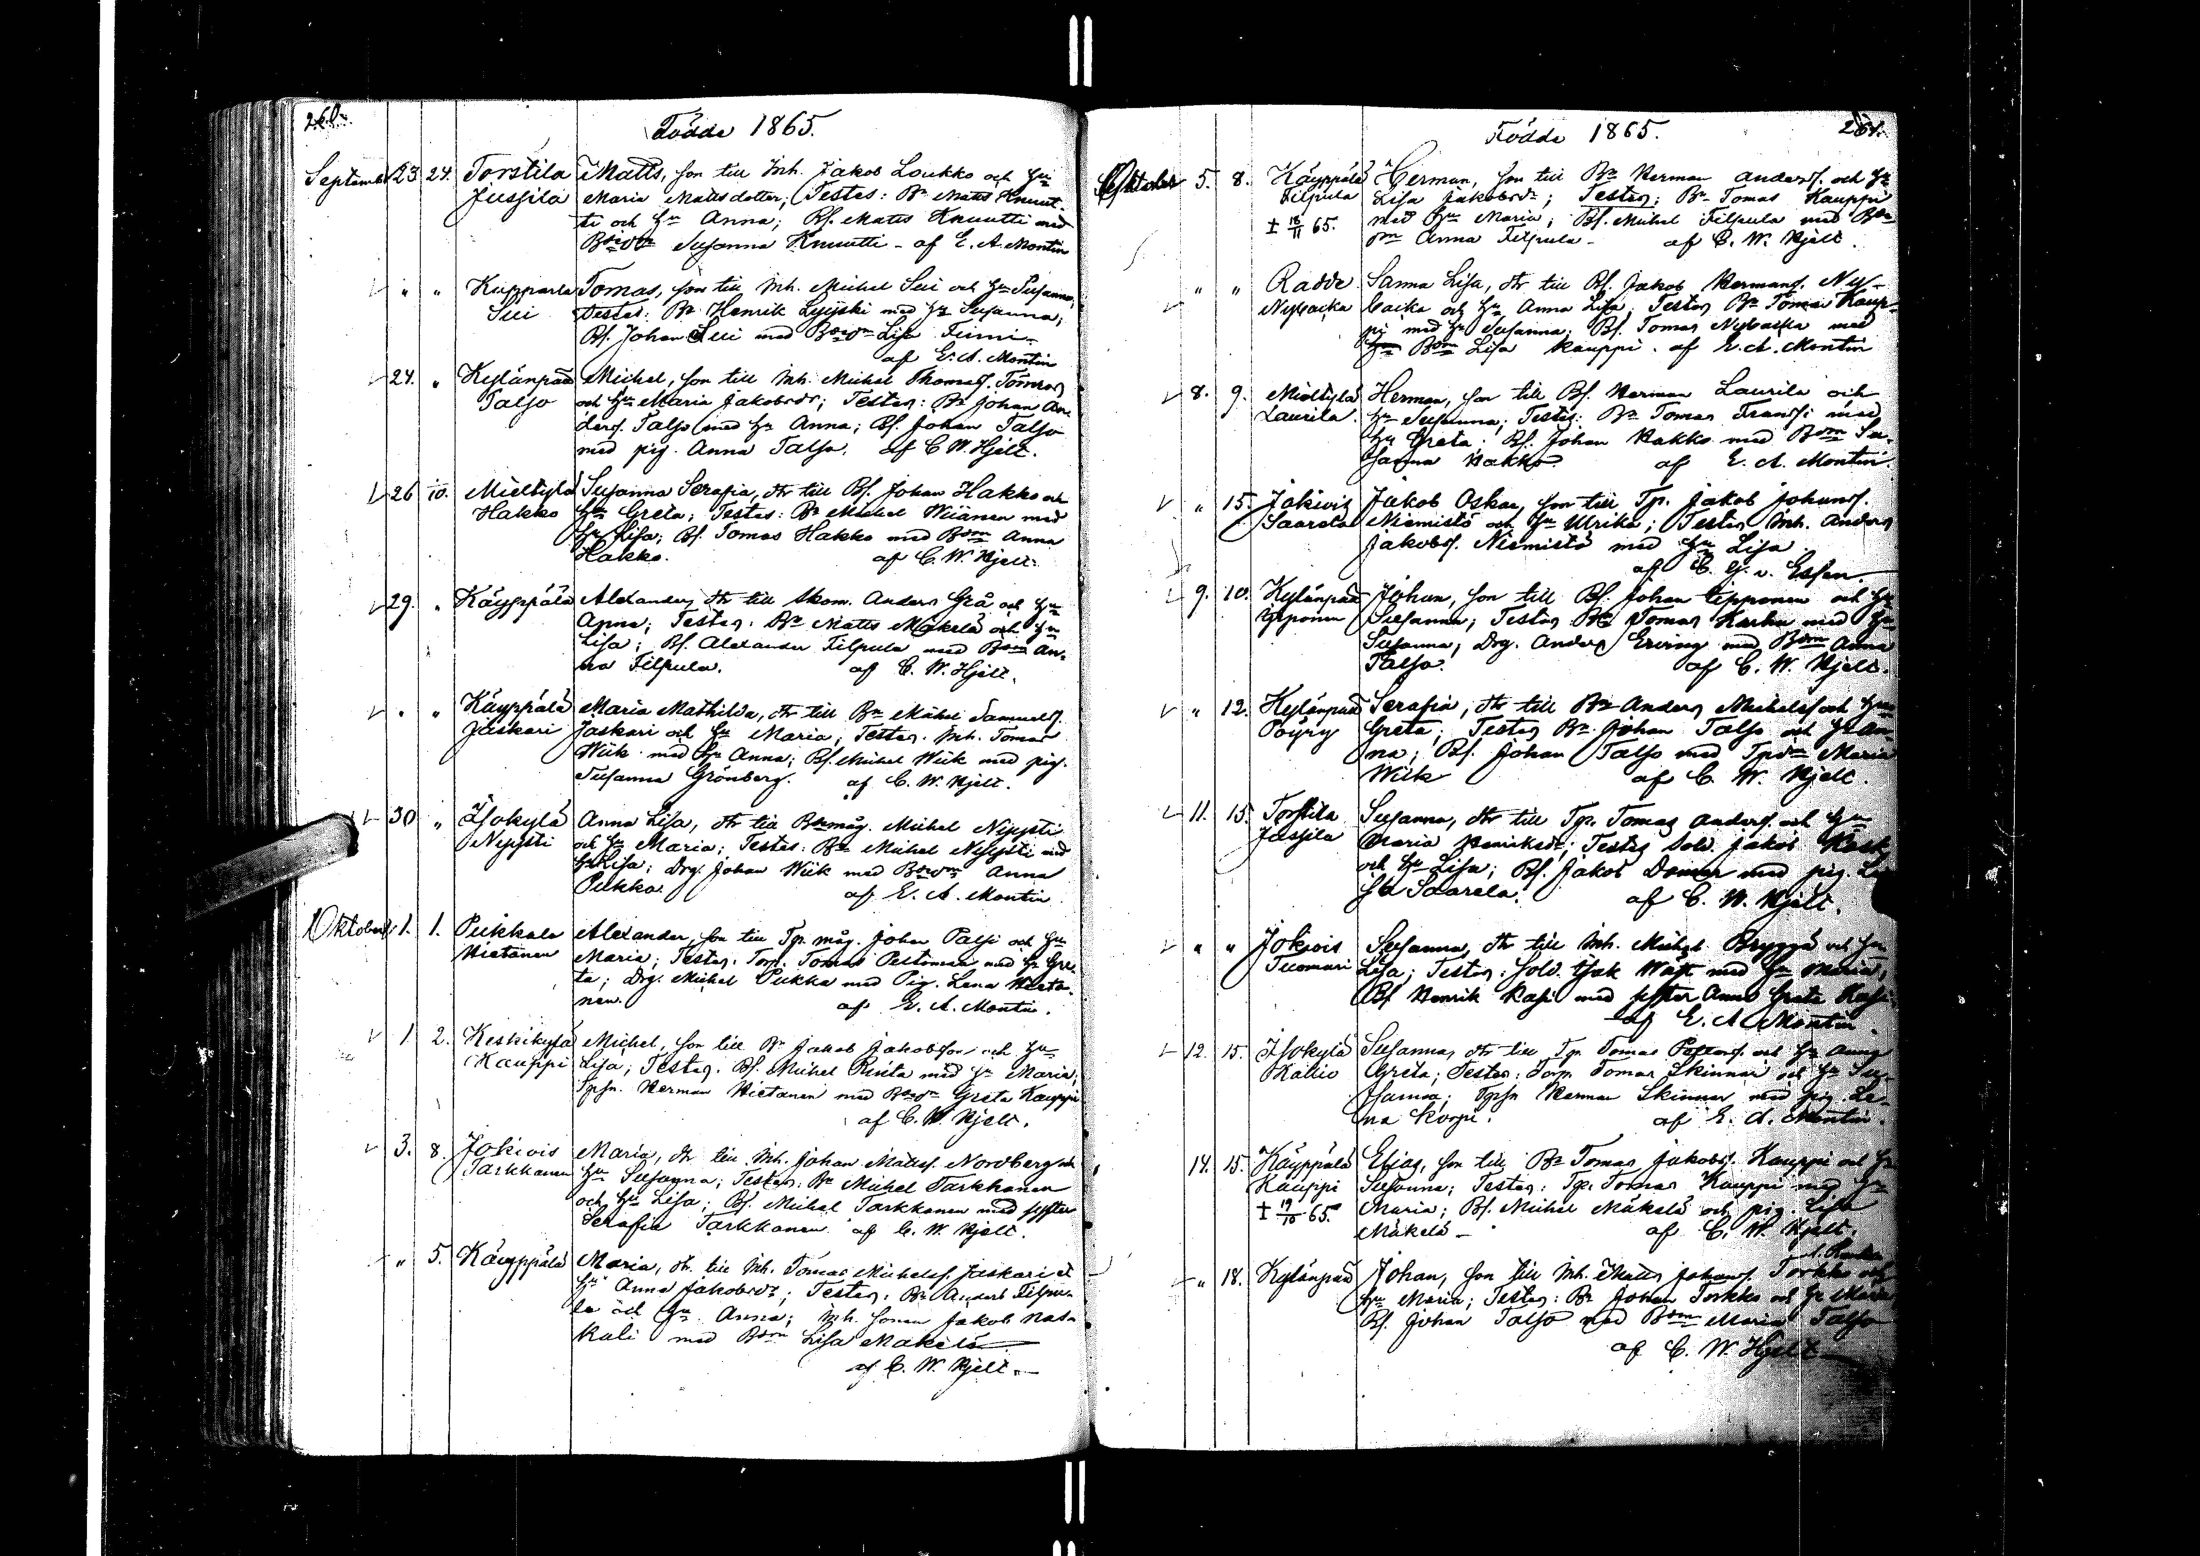 260.
Födde 1865.
September 23 24. Torstila Matts, son till Inh. Jakob Loukko och Hu
Jussila Maria Mattsdotter; Testes: Bn Matts Knuut-
ti och Hu Anna; Bs. Matts Knuutti med
Susanna Knuutti - af E. A. Montin
" " Kupparla Tomas, son till Inh. Michel Sui och Hu Susanna;
Sui Testes: Bn Henrik med Hu Susanna;
Bs. Johan Sui med Lisa
af E. A. Montin
24. " Kylänpää Michel, son till Inh. Michel Thomass.
Talso och Hu Maria Jakobsdr; Testes: Bn Johan An-
ders. Talso med Hu Anna; Bs. Johan Talso
med pig. Anna Talso. af C. W. Hjelt.
26 10. Mieltylä Susanna Serafia, dtr till Bs. Johan Hakko och
Hakko Hu Greta; Testes: Bn Michel Wiänen med
Hu Lisa; Bs. Tomas Hakko med Bdm Anna
Hakko. af C. W. Hjelt.
29. " Käyppälä Alexander, dtr till Skom. Anders Grå och Hu
Anna; Testes: Bn Matts Mäkelä och Hu
Lisa; Bs. Alexander Filpula med Bdm An-
na Filpula. af C. W. Hjelt.
" " Käyppälä Maria Mathilda, dtr till Bn Michel Samuels.
Jäskari Jäskari och Hu Maria; Testes: Inh. Tomas
Wiik med Hu Anna; Bs. Michel Wiik med pig.
Susanna Grönberg. af C. W. Hjelt.
30 " Isokylä Anna Lisa, dtr till Bnmåg. Michel Nipisti
Nipisti och Hu Maria; Testes: Bn Michel Nipisti med
Hu Lisa; Drg. Johan Wiik med Anna
Pukko. af E. A. Montin
Oktober 1. 1. Pukkala Alexander, son till Tp. måg. Johan Palsi och Hu
Hietanen Maria; Testes: Torp. Tomas Pestoman med Hu Gre-
ta; Drg. Michel Pukka med Pig. Lena Hieta-
nen. af E. A. Montin.
1 2. Keskikylä Michel, son till Bn Jakob Jakobsson och Hu
Kauppi Lisa; Testes: Bs. Michel Rinta med Hu Maria;
Tpsn. Herman Hietanen med Greta Kauppi
af C. W. Hjelt.
3. 8. Jokivis Maria, dtr till Inh. Johan Matss. Nordberg och
Tarkkanen Hu Susanna; Testes: Bn Michel Tarkkanen
och Hu Lisa; Bs. Michel Tarkkanen med syster
Serafia Tarkkanen. af C. W. Hjelt.
" 5. Käyppälä Maria, dtr till Inh. Tomas Michelss. Jaskari och
Hu Anna Jakobsdr; Testes: Bn Anders Filpu-
la och Hu Anna; Inh. sonen Jakob Nas-
kali med Bdm Lisa Mäkelä
af C. W. Hjelt.
261.
Födde 1865.
Oktober 5. 8. Käyppälä Herman, son till Bn Herman Anderss. och Hu
Filpula Lisa Jakobsdr; Testes: Bn Tomas Kauppi
± 18/11 65. med Hu Maria; Bs. Michel Filpula med
Anna Filpula - af C. W. Hjelt.
" " Radde Sanna Lisa, dtr till Bs. Jakob Hermans. Ny-
Nybacka backa och Hu Anna Lisa; Testes Bn Tomas Kaup-
pi med Hu Susanna; Bs. Tomas Nybacka med
Bdm Lisa Kauppi. af E. A. Montin
8. 9. Mieltylä Herman, son till Bs. Herman Laurila och
Laurila. Hu Susanna; Testes: Bn Tomas Fransi med
Hu Greta; Bs. Johan Hakko med Bdm Su-
sanna Hakko. af E. A. Montin.
" 15. Jokivis Jakob Oskar, son till Tp. Jakob Johanss.
Saarela Niemistö och Hu Ulrika; Testes Inh. Anders
Jakobs. Niemistö med Hu Lisa
af C. G. v. Essen.
9. 10. Kylänpää Johan, son till Bs. Johan Ypponen och Hu
Ypponen Susanna; Testes Bn Tomas Karhu med Hu
Susanna; Drg. Anders Erving med Bdm Anna
Talso. af C. W. Hjelt.
" 12. Kylänpää Serafia, dtr till Bn Anders Michelss. och Hu
Pöyry Greta; Testes Bn Johan Talso och Hu An-
na; Bs. Johan Talso med Tpdr Maria
Wiik af C. W. Hjelt.
11. 15. Torstila Susanna, dtr till Tp. Tomas Anderss. och Hu
Jussila Maria Henriksdr; Testes Sold. Jakob Rask
och Hu Lisa; Bs. Jakob med pig.
Saarela. af C. W. Hjelt.
" " Jokivis Susanna, dtr till Inh. Michel Brygga och Hu
Tuomari Lisa; Testes: Sold. Isak med Hu Maria;
Bs Henrik Kasi med syster Anna Greta Kasi
af E. A. Montin.
12. 15. Isokylä Susanna, dtr till Tp. Tomas och Hu Anna
Kallio Greta; Testes: Torp. Tomas Skinnar och Hu Su-
sanna; Tpsn Herman Skinnar med pig. Le-
na Korpi. af E. A. Montin.
14. 15. Käyppälä Elias, son till Bn Tomas Jakobs. Kauppi och Hu
Kauppi Susanna; Testes: Tp. Tomas Kauppi med Hu
± 19/10 65. Maria; Bs. Michel Mäkelä och pig. Lisa
Mäkelä - af C. W. Hjelt.
" 18. Kylänpää Johan, son till Inh. Matts Johans. Torkko och
Hu Maria; Testes: Bn Johan Torkko och Hu Maria;
Bs. Johan Talso med Bdm Maria Talso
af C. W. Hjelt